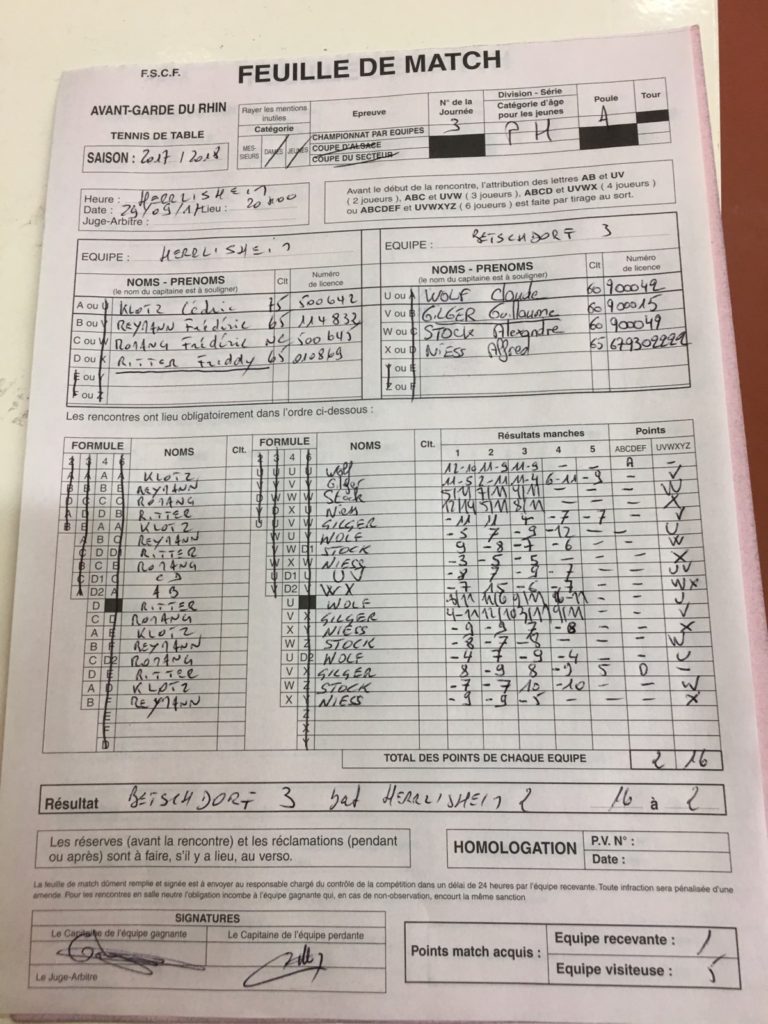 F.S.C.F.
FEUILLE DE MATCH
AVANT-GARDE DU RHIN
TENNIS DE TABLE
SAISON : 2017 / 2018
Rayer les mentions inutiles
Catégorie
MES-SIEURS DAMES JEUNES
Epreuve
CHAMPIONNAT PAR EQUIPES
COUPE D'ALSACE
COUPE DU SECTEUR
N° de la Journée
3
Division - Série
Catégorie d'âge pour les jeunes
PH
Poule
A
Tour
Heure : HERRLISHEIM
Date : 29/09/17 Lieu : 20H00
Juge-Arbitre :
Avant le début de la rencontre, l'attribution des lettres AB et UV
( 2 joueurs ), ABC et UVW ( 3 joueurs ), ABCD et UVWX ( 4 joueurs )
ou ABCDEF et UVWXYZ ( 6 joueurs ) est faite par tirage au sort.
EQUIPE : HERRLISHEIM
NOMS - PRENOMS
(le nom du capitaine est à souligner)
Clt
Numéro de licence
A ou U KLOTZ Cédric 75 500642
B ou V REYMANN Frédéric 65 114832
C ou W ROMANG Frédéric NC 500645
D ou X RITTER Freddy 65 010869
E ou Y
F ou Z
EQUIPE : BETSCHDORF 3
NOMS - PRENOMS
(le nom du capitaine est à souligner)
Clt
Numéro de licence
U ou A WOLF Claude 60 900042
V ou B GILGER Guillaume 60 900015
W ou C STOCK Alexandre 60 900049
X ou D NIESS Alfred 65
Y ou E
Z ou F
Les rencontres ont lieu obligatoirement dans l'ordre ci-dessous :
FORMULE NOMS Clt. FORMULE NOMS Clt. Résultats manches Points
2 3 4 6 2 3 4 6 1 2 3 4 5 ABCDEF UVWXYZ
A KLOTZ U Wolf 12-10 11-9 11-9 — — A —
B REYMANN V Gilger 11-5 2-11 11-4 6-11 -9 — V
C ROMANG W Stock 5/11 7/11 9/11 — — — W
D RITTER X Niess — — X
A KLOTZ V GILGER -11 11 4 -7 -7 — V
B REYMANN U WOLF -5 7 -9 -12 — — U
D RITTER W STOCK 9 -8 -7 -6 — — W
C ROMANG X NIESS -3 -5 -5 — — — X
D1 CD U1 UV -8 7 -9 -7 — — UV
D2 AB D2 WX -7 15 -6 -7 — — WX
D RITTER U WOLF — — U
C ROMANG V GILGER 4-11 12/10 3/11 9/11 — — V
A KLOTZ X NIESS -9 -9 7 -8 — — X
B REYMANN W STOCK -8 -7 -8 — — — W
C ROMANG U WOLF -4 7 -9 -4 — — U
D RITTER V GILGER 8 -9 8 -9 5 D —
A KLOTZ W STOCK -7 -7 10 -10 — — W
B REYMANN X NIESS -9 -9 -5 — — — X
TOTAL DES POINTS DE CHAQUE EQUIPE 2 16
Résultat BETSCHDORF 3 bat HERRLISHEIM 2 16 à 2
Les réserves (avant la rencontre) et les réclamations (pendant
ou après) sont à faire, s'il y a lieu, au verso.
HOMOLOGATION
P.V. N° :
Date :
La feuille de match dûment remplie et signée est à envoyer au responsable chargé du contrôle de la compétition dans un délai de 24 heures par l'équipe recevante. Toute infraction sera pénalisée d'une
amende. Pour les rencontres en salle neutre l'obligation incombe à l'équipe gagnante qui, en cas de non-observation, encourt la même sanction
SIGNATURES
Le Capitaine de l'équipe gagnante
Le Capitaine de l'équipe perdante
Le Juge-Arbitre
Points match acquis :
Equipe recevante : 1
Equipe visiteuse : 5